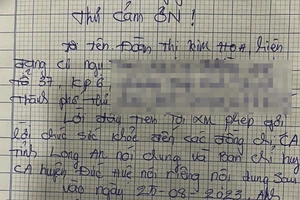 Thư Cảm ƠN!
Tôi tên Đoàn Thị Kim Hoa, hiện
đang cư ngụ
tổ 37, KP6,
Thành phố Thủ
Lời đầu tiên Tôi xin phép gửi
lời chúc sức khỏe đến các đồng chí, CA
tỉnh Long An nói chung và Ban chỉ huy
CA huyện Đức Huệ nói riêng nội dung sau
vào ngày 25-08-2023, Anh